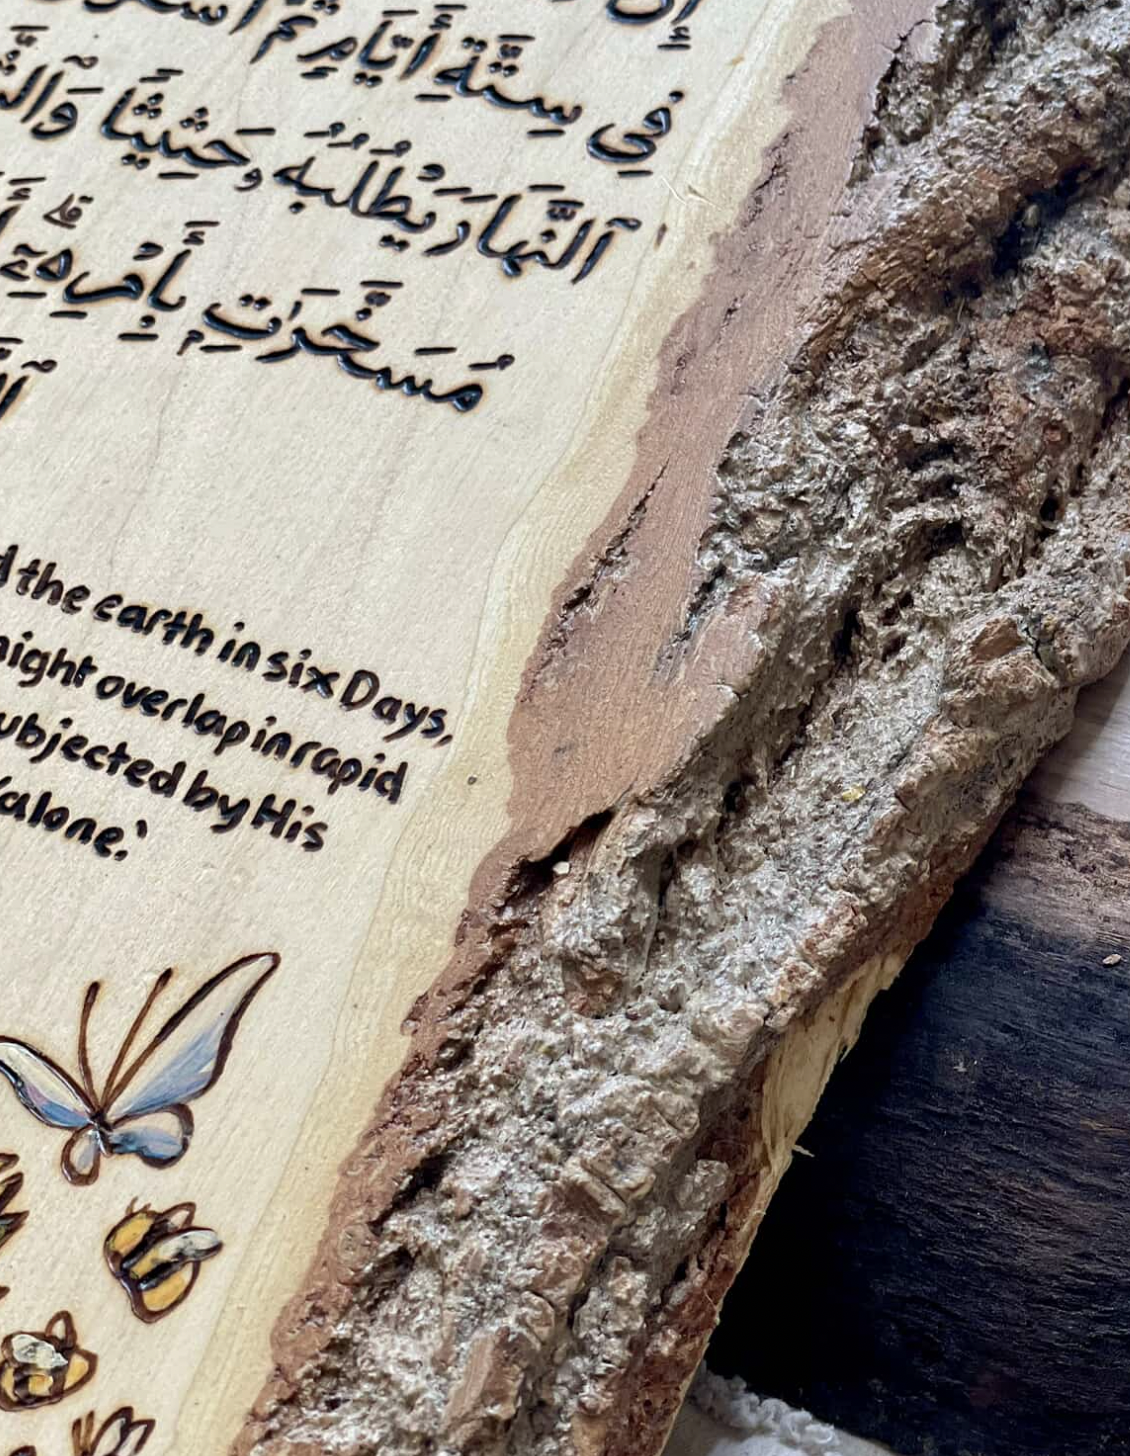 إن
في ستة أيام ثم
النهار يطلبه وحثيثا
مسخرات بأمره قلے
the earth in six Days,
night overlap in rapid
subjected by His
alone.'